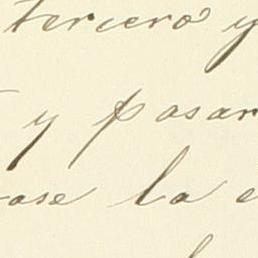 tercero y
y pasar
ase la